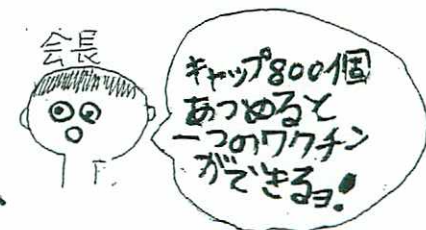 会長
キャップ800個
あつめると
一つのワクチン
ができるヨ!